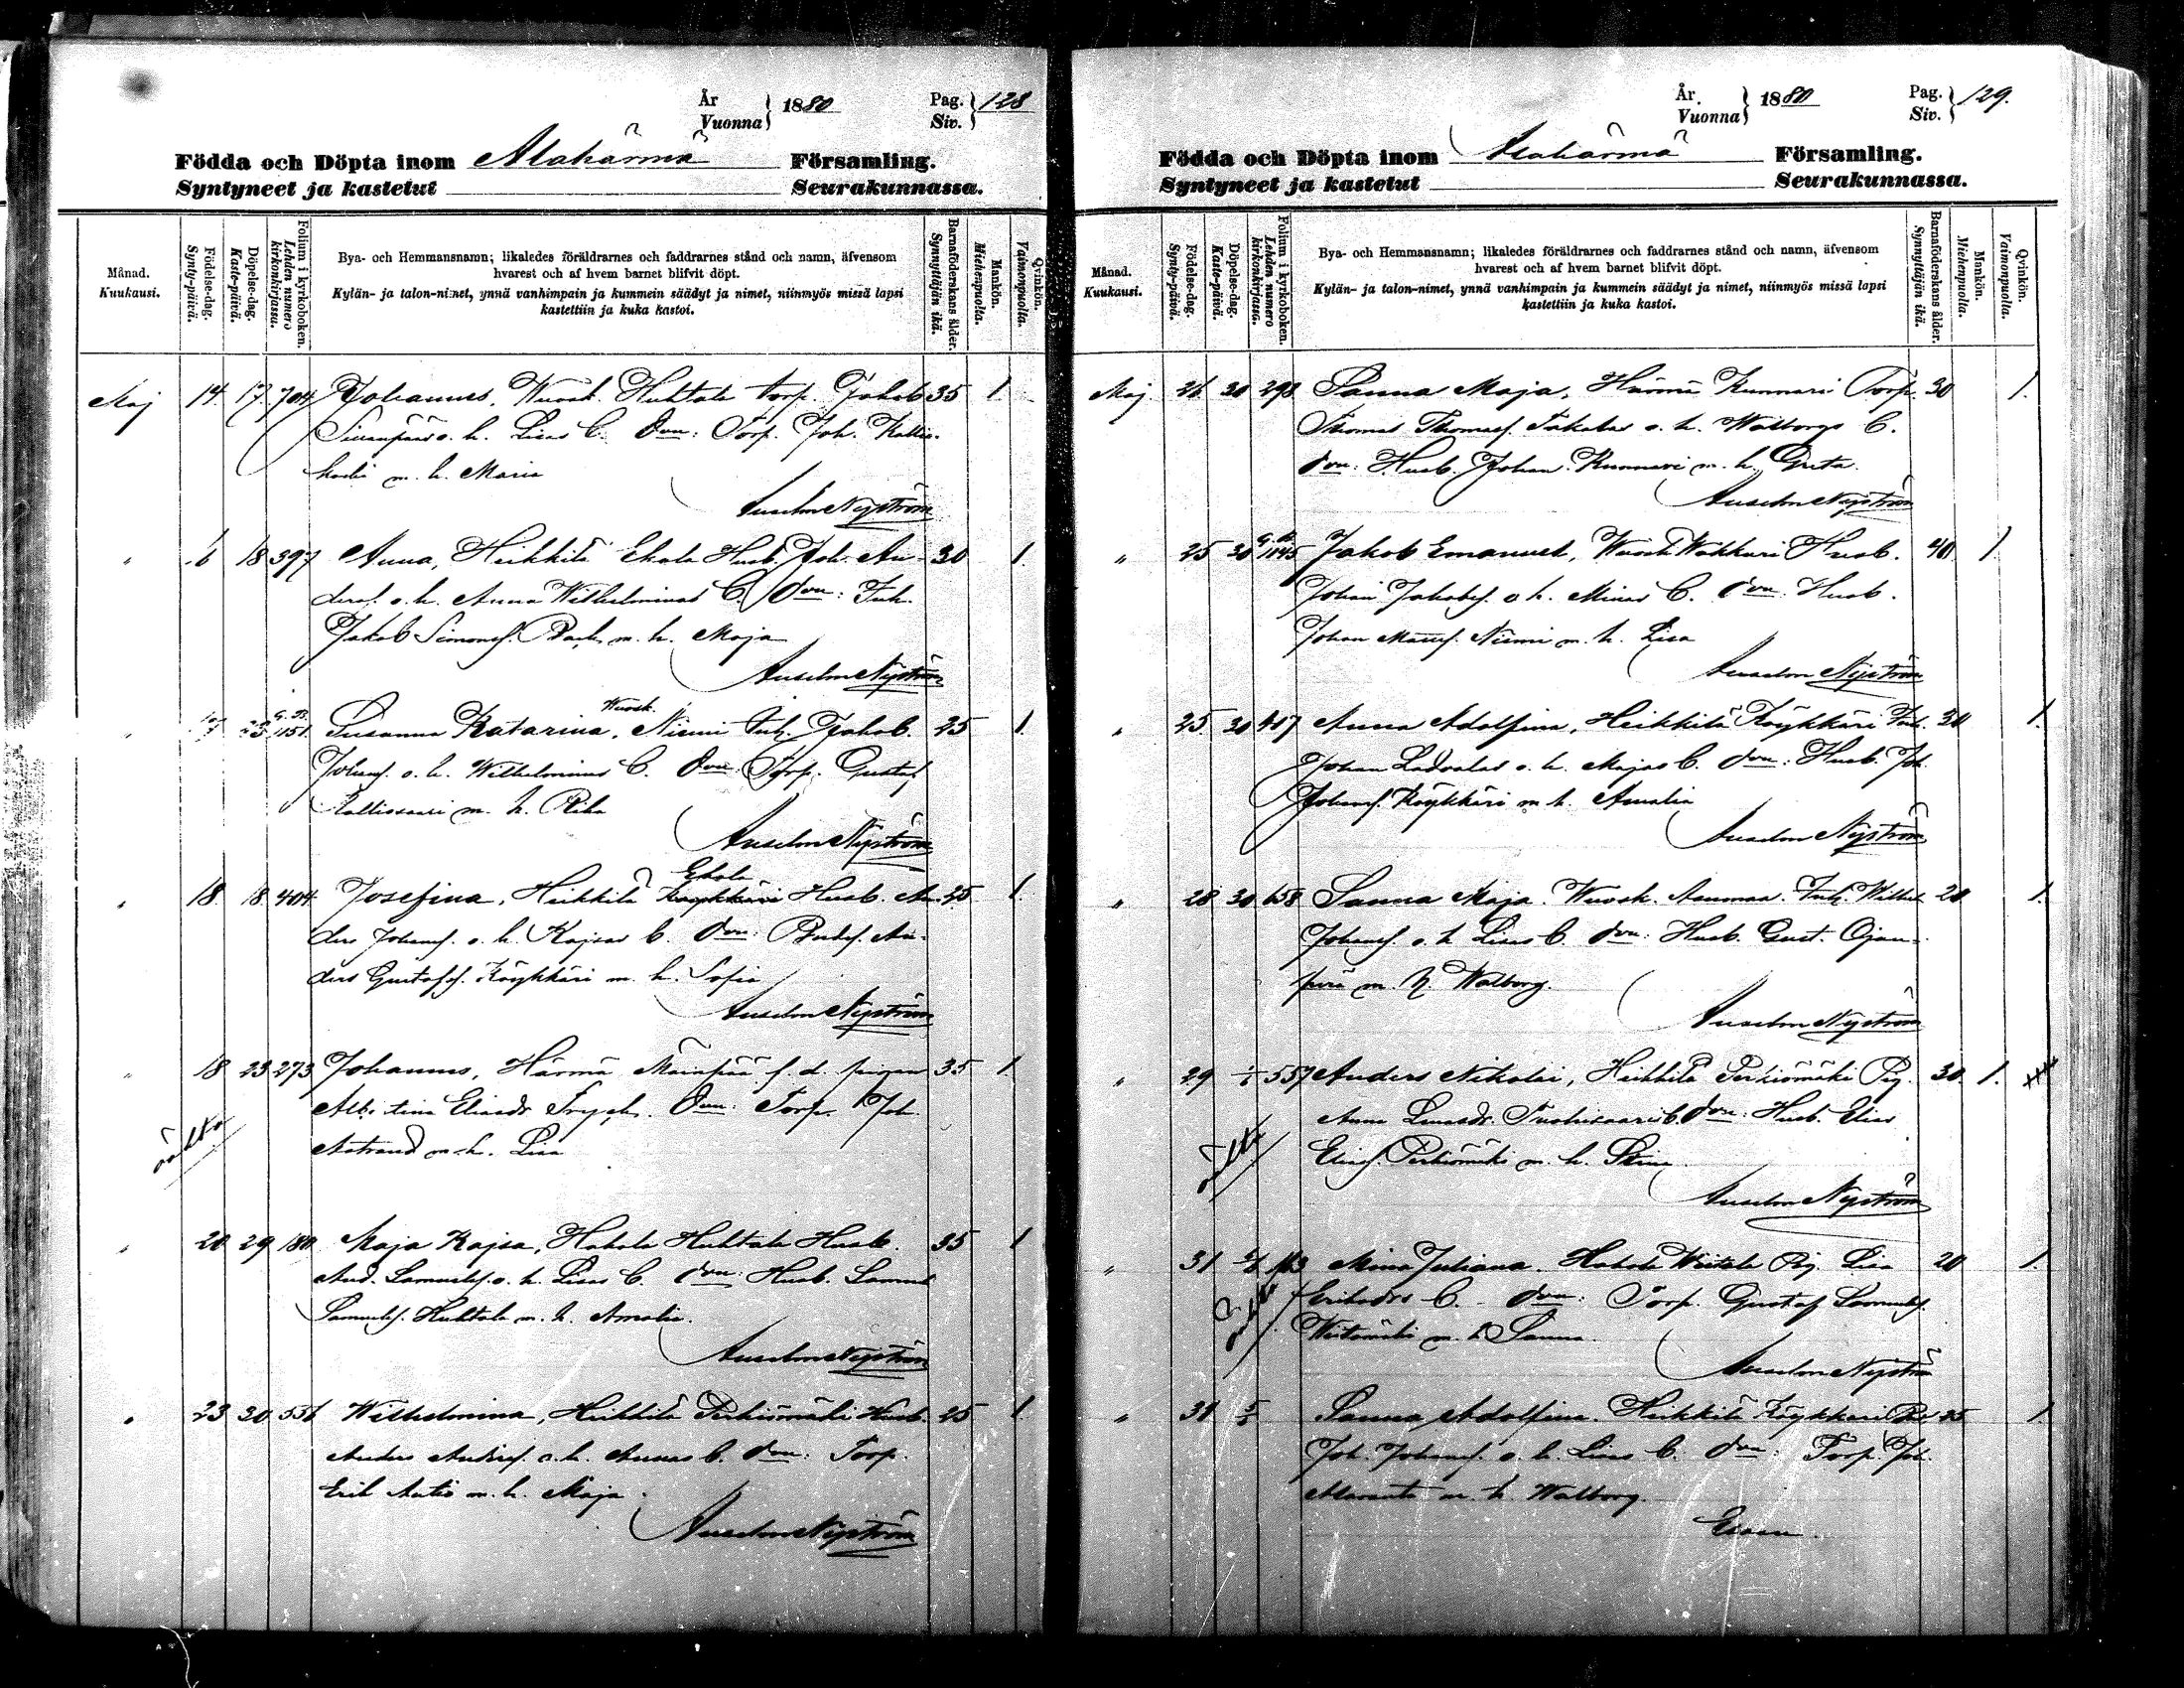 År
Vuonna } 1880
Pag.
Siv. } 128
Födda och Döpta inom Alahärmä Församling.
Syntyneet ja kastetut Seurakunnassa.
Månad.
Kuukausi.
Födelse-dag.
Synty-päivä.
Döpelse-dag.
Kaste-päivä.
Folium i kyrkoboken.
Lehden numero kirkonkirjassa.
Bya- och Hemmansnamn; likaledes föräldrarnes och faddrarnes stånd och namn, äfvensom
hvarest och af hvem barnet blifvit döpt.
Kylän- ja talon-nimet, ynnä vanhimpain ja kummein säädyt ja nimet, niinmyös missä lapsi
kastettiin ja kuka kastoi.
Barnaföderskans ålder.
Synnyttäjän ikä.
Mankön.
Miehenpuolta.
Qvinkön.
Vaimonpuolta.
Maj 14. 17. 704 Johannes, Wuosk. Huhtala torp. Jakob 35 1.
o. h. Lisas C. dvn: Torp. Joh. Kallio-
m. h. Maria
Anselm Nyström
" 16 18 397 Anna, Heikkilä Ekola Husb. Joh. An- 30 1.
dersf. o. h. Anna Wilhelminas C. dvn: Inh.
Jakob Simonsf. m. h. Maja
Anselm Nyström
Wuosk.
" 17 23 G. B. 1151 Susanna Katarina, Niemi Inh. Jakob 25 1.
Johansf. o. h. Wilhelminas C. dvn: Torp. Gustaf
Kalliosaari m. h. Rika
Anselm Nyström
Ekola
" 18. 18 404 Josefina, Heikkilä Köykkäri Husb. An- 25 1.
ders Johansf. o. h. Kajsas C. dvn: An-
ders Gustafsf. Köykkäri m. h. Sofia
Anselm Nyström
" 18 23 273 Johannes, Härmä f. d. pigan 35 1.
Albertina Eliasdr dvn: Torp. Joh.
m. h. Lisa
oäkta
" 20 29 180 Maja Kajsa, Hakola Huhtala Husb. 35 1
And. Samuelsf. o. h. Lisas C. dvn: Husb. Samuel
Samuelsf. Huhtala m. h. Amalia.
Anselm Nyström
" 23 30 556 Wilhelmina, Heikkilä Perkiömäki Husb. 25 1.
Anders Andersf. o. h. Annas C. dvn: Torp.
Erik Autio m. h. Maja.
Anselm Nyström
År.
Vuonna } 1880
Pag.
Siv. } 129.
Födda och Döpta inom Alahärmä Församling.
Syntyneet ja kastetut Seurakunnassa.
Månad.
Kuukausi.
Födelse-dag.
Synty-päivä.
Döpelse-dag.
Kaste-päivä.
Folium i kyrkoboken.
Lehden numero kirkonkirjassa.
Bya- och Hemmansnamn; likaledes föräldrarnes och faddrarnes stånd och namn, äfvensom
hvarest och af hvem barnet blifvit döpt.
Kylän- ja talon-nimet, ynnä vanhimpain ja kummein säädyt ja nimet, niinmyös missä lapsi
kastettiin ja kuka kastoi.
Barnaföderskans ålder.
Synnyttäjän ikä.
Mankön.
Miehenpuolta.
Qvinkön.
Vaimonpuolta.
Maj. 26 30 298 Sanna Maja, Härmä Kunnari Torp. 30 1.
Thomas Thomasf. o. h. Walborgs C.
dvn: Husb. Johan Kunnari m. h. Greta.
Anselm Nyström
" 25 30 G. B. 1145 Jakob Emanuel, Wuosk. Wakkuri Husb. 40 1.
Johan Jakobsf. o h. Minas C. dvn: Husb.
Johan Mattsf. Niemi m. h. Lisa
Anselm Nyström
" 25 30 417 Anna Adolfina, Heikkilä Köykkäri Inh. 30 1.
Johan o. h. Majas C. dvn: Husb. Joh.
Johansf. Köykkäri m. h. Amalia
Anselm Nyström
" 28 30 658 Sanna Maja. Wuosk. Inh. Wilhel. 20 1.
Johansf. o. h Lisas C. dvn: Husb. Gust. Ojan-
perä m. h. Walborg.
Anselm Nyström
" 29 1/6 557 Anders Nikolai, Heikkilä Perkiömäki Pig. 30. 1.
Anna C. dvn: Husb. Elias
Eliasf. Perkiömäki m. h. Stina
oäkta
Anselm Nyström
" 31 163 Mina Juliana. Hakola Pig. Lisa 20 1.
Eriksdrs C. dvn: Torp. Gustaf Samuelsf.
m. h Sanna.
Anselm Nyström
" 31 Sanna Adolfina. Heikkilä Köykkäri 25 1
Joh. Johansf. o. h. Lisas C. dvn: Torp. Joh.
m. h. Walborg.